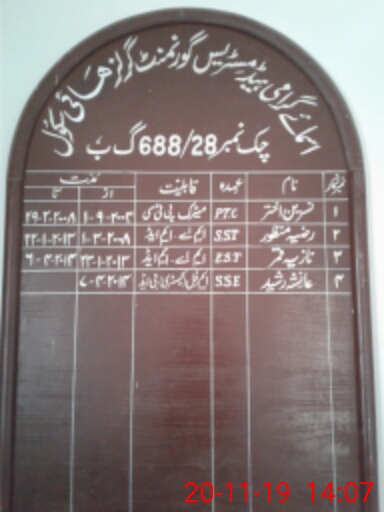 اسمائے گرامی ہیڈ مسٹریس گورنمنٹ گرلز ھائی سکول
چک نمبر 688/28 گ ب
نمبر شمار نام عہدہ قابلیت مدت
از تا
۱ نسرین اختر PTC میٹرک پی ٹی سی ۱-۹-۲۰۰۳ ۲۹-۲-۲۰۰۸
۲ رضیہ منظور SST ایم اے-ایم ایڈ ۱-۳-۲۰۰۸ ۲۲-۱-۲۰۱۳
۳ نازیہ قمر EST ایم اے-ایم ایڈ ۲۳-۱-۲۰۱۳ ۶-۴-۲۰۱۳
۴ عائشہ رشید SSE ایم فل کیمسٹری بی ایڈ ۷-۴-۲۰۱۴
20-11-19 14:07